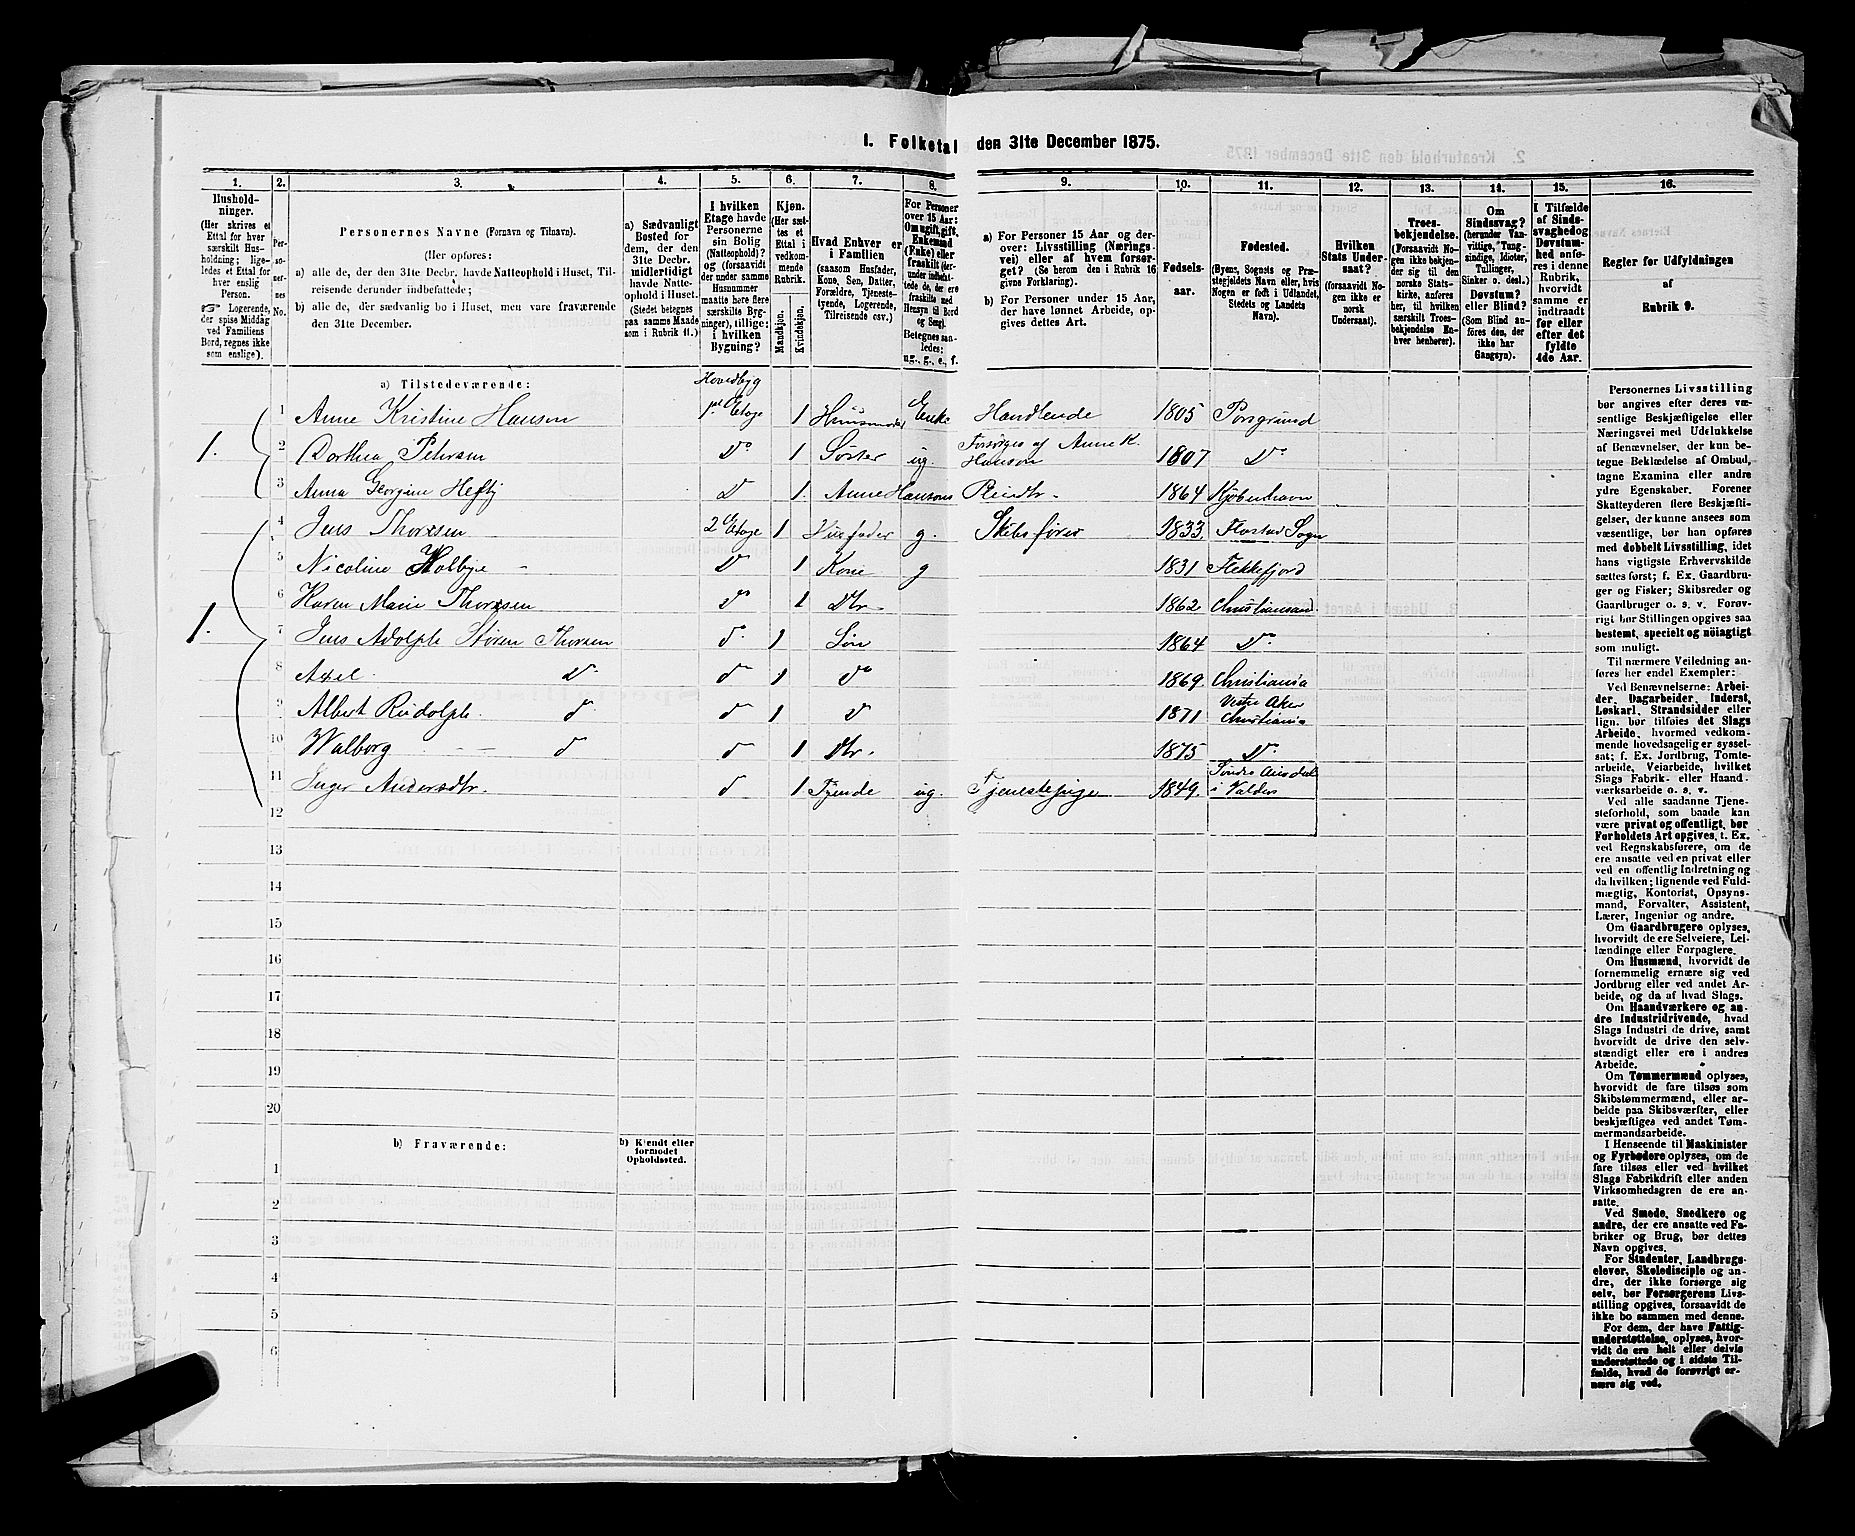 1. Folketal den 31te December 1875.
1. 2. 3. 4. 5. 6. 7. 8. 9. 10. 11. 12. 13. 14. 15. 16.
Hushold-
ninger.
(Her skrives et
Ettal for hver
særskilt Hus-
holdning; lige-
ledes et Ettal for
hver enslig
Person.
Logerende,
der spise Middag
ved Familiens
Bord, regnes ikke
som enslige).
Per-
so-
ner-
nes
No.
Personernes Navne (Fornavn og Tilnavn).
(Her opføres:
a) alle de, der den 31te Decbr. havde Natteophold i Huset, Til-
reisende derunder indbefattede;
b) alle de, der sædvanlig bo i Huset, men vare fraværende
den 31te December.
a) Sædvanligt
Bosted for
dem, der den
31te Decbr.
midlertidigt
havde Natte-
ophold i Huset.
(Stedet betegnes
paa samme Maade
som i Rubrik 11.)
I hvilken
Etage havde
Personerne
sin Bolig
(Natteophold)?
og (forsaavidt
der under samme
Husnummer
maatte høre flere
særskilte Byg-
ninger), tillige:
i hvilken
Bygning?
Kjøn.
(Her sæt-
tes et
Ettal i
vedkom-
mende
Rubrik.
Mandkjøn.
Kvindekjøn.
Hvad Enhver er
i Familien
(saasom Husfader,
Kone, Søn, Datter,
Forældre, Tjeneste-
tyende, Logerende,
Tilreisende osv.)
For Personer
over 15 Aar:
Om ugift, gift,
Enkemand
(Enke) eller
fraskilt (der-
under indbefat-
tede de, der ere
fraskilte med
Hensyn til Bord
og Seng).
Betegnes saa-
ledes:
ug., g., e., f.
a) For Personer 15 Aar og der-
over: Livsstilling (Nærings-
vei) eller af hvem forsør-
get? (Se herom den i Rubrik 16
givne Forklaring).
b) For Personer under 15 Aar,
der have lønnet Arbeide, op-
gives dettes Art.
Fødsels-
aar.
Fødested.
(Byens, Sognets og Præ-
stegjeldets Navn eller, hvis
Nogen er født i Udlandet,
Stedets og Landets
Navn).
Hvilken
Stats Under-
saat?
(forsaavidt No-
gen ikke er
norsk
Undersaat).
Troes-
bekjendelse.
(Forsaavidt No-
gen ikke bekjen-
der sig til den
norske Stats-
kirke, anføres
her, til hvilken
særskilt Troes-
bekjendelse En-
hver henhører).
Om
Sindssvag?
(herunder Van-
vittige, Tung-
sindige, Idioter,
Tullinger,
Sinker o. desl.)
Døvstum?
eller Blind?
(Som Blind an-
føres den, der
ikke har
Gangsyn).
I Tilfælde
af Sinds-
svaghed og
Døvstum-
hed anfø-
res i denne
Rubrik,
hvorvidt
samme er
indtraadt
før eller
efter det
fyldte
4de Aar.
Regler for Udfyldningen
af
Rubrik 9.
a) Tilstedeværende:
Hovedbyg
1. 1 Anne Kristine Hansen 1ste Etage 1 Huusmoder Enke Handlende 1805 Porsgrund
2 Dorthea Petersen Do 1 Søster ug. Forsørges af Anne K. Hansen 1807 Do
3 Anna Georgine Hefty D 1 Anne Hansens Pleiedtr. 1864 Kjøbenhavn
1. 4 Jens Thorsen 2 Etage 1 Husfader g. Skibsfører 1833 Flostad Sogn
5 Nicoline Holbye Do 1 Kone g 1831 Flekkefjord
6 Karen Marie Thorsen Do 1 Dtr. 1862 Christiansand
7 Jens Adolph Støren Thorsen d 1 Søn 1864 Do
8 Axel D d 1 do 1869 Christiania
9 Albert Rudolph d d 1 d 1871 Vestre Aker Christiania
10 Walborg d d 1 Dtr. 1875 D
11 Inger Andersdtr. d 1 Tjende ug. Tjenestepige 1849 Søndre Aurdal i Valders
12
13
14
15
16
17
18
19
20
b) Fraværende:
b) Kjendt eller
formodet
Opholdssted.
1
2
3
4
5
6
Personernes Livsstilling
bør angives efter deres væ-
sentlige Beskjæftigelse eller
Næringsvei med Udelukkelse
af Benævnelser, der kun be-
tegne Beklædelse af Ombud,
tagne Examina eller andre
ydre Egenskaber. Forener
Skatteyderen flere Beskjæfti-
gelser, der kunne ansees som
væsentlige, bør han opføres
med dobbelt Livsstilling, idet
hans vigtigste Erhvervskilde
sættes først; f. Ex. Gaardbru-
ger og Fisker; Skibsreder og
Gaardbruger o. s. v. Forøv-
rigt bør Stillingen opgives saa
bestemt, specielt og nøiagtigt
som muligt.
Til nærmere Veiledning an-
føres her endel Exempler:
Ved Benævnelserne: Arbei-
der, Dagarbeider, Inderst,
Løskarl, Strandsidder eller
lign. bør tilføies det Slags
Arbeide, hvormed vedkom-
mende hovedsagelig er syssel-
sat; f. Ex. Jordbrug, Tomte-
arbeide, Veiarbeide, hvilket
Slags Fabrik- eller Haand-
værksarbeide o. s. v.
Ved alle saadanne Tjene-
steforhold, som baade kan
være privat og offentligt, bør
Forholdets Art opgives, t. Ex.
ved Regnskabsførere, om de
ere ansatte ved en privat eller
ved en offentlig Indretning og
da hvilken; lignende ved Fuld-
mægtig, Kontorist, Opsyns-
mand, Forvalter, Assistent,
Lærer, Ingeniør og andre.
Om Gaardbrugere oplyses,
hvorvidt de ere Selveiere, Lei-
lændinge eller Forpagtere.
Om Husmænd, hvorvidt de
fornemmelig ernære sig ved
Jordbrug eller ved andet Ar-
beide, og da af hvad Slags.
Om Haandværkere og an-
dre Industridrivende, hvad
Slags Industri de drive, samt
hvorvidt de drive den selv-
stændigt eller ere i andres
Arbeide.
Om Tømmermænd oplyses,
hvorvidt de fare tilsøs som
Skibstømmermænd, eller ar-
beide paa Skibsværfter, eller
beskjæftiges ved andet Tøm-
mermandsarbeide.
I Henseende til Maskinister
og Fyrbødere oplyses, om de
fare tilsøs eller ved hvilket
Slags Fabrikdrift eller anden
Virksomhedsgren de ere an-
satte.
Ved Smede, Snedkere og
andre, der ere ansatte ved Fa-
briker og Brug, bør dettes
Navn opgives.
For Studenter, Landbrugs-
elever, Skoledisciple og an-
dre, der ikke forsørge sig
selv, bør Forsørgerens Livs-
stilling opgives, forsaavidt de
ikke bo sammen med denne.
For dem, der have Fattig-
understøttelse, oplyses, hvor-
vidt de ere helt eller delvis
understøttede og i sidste Til-
fælde, hvad de forøvrigt er-
nære sig ved.